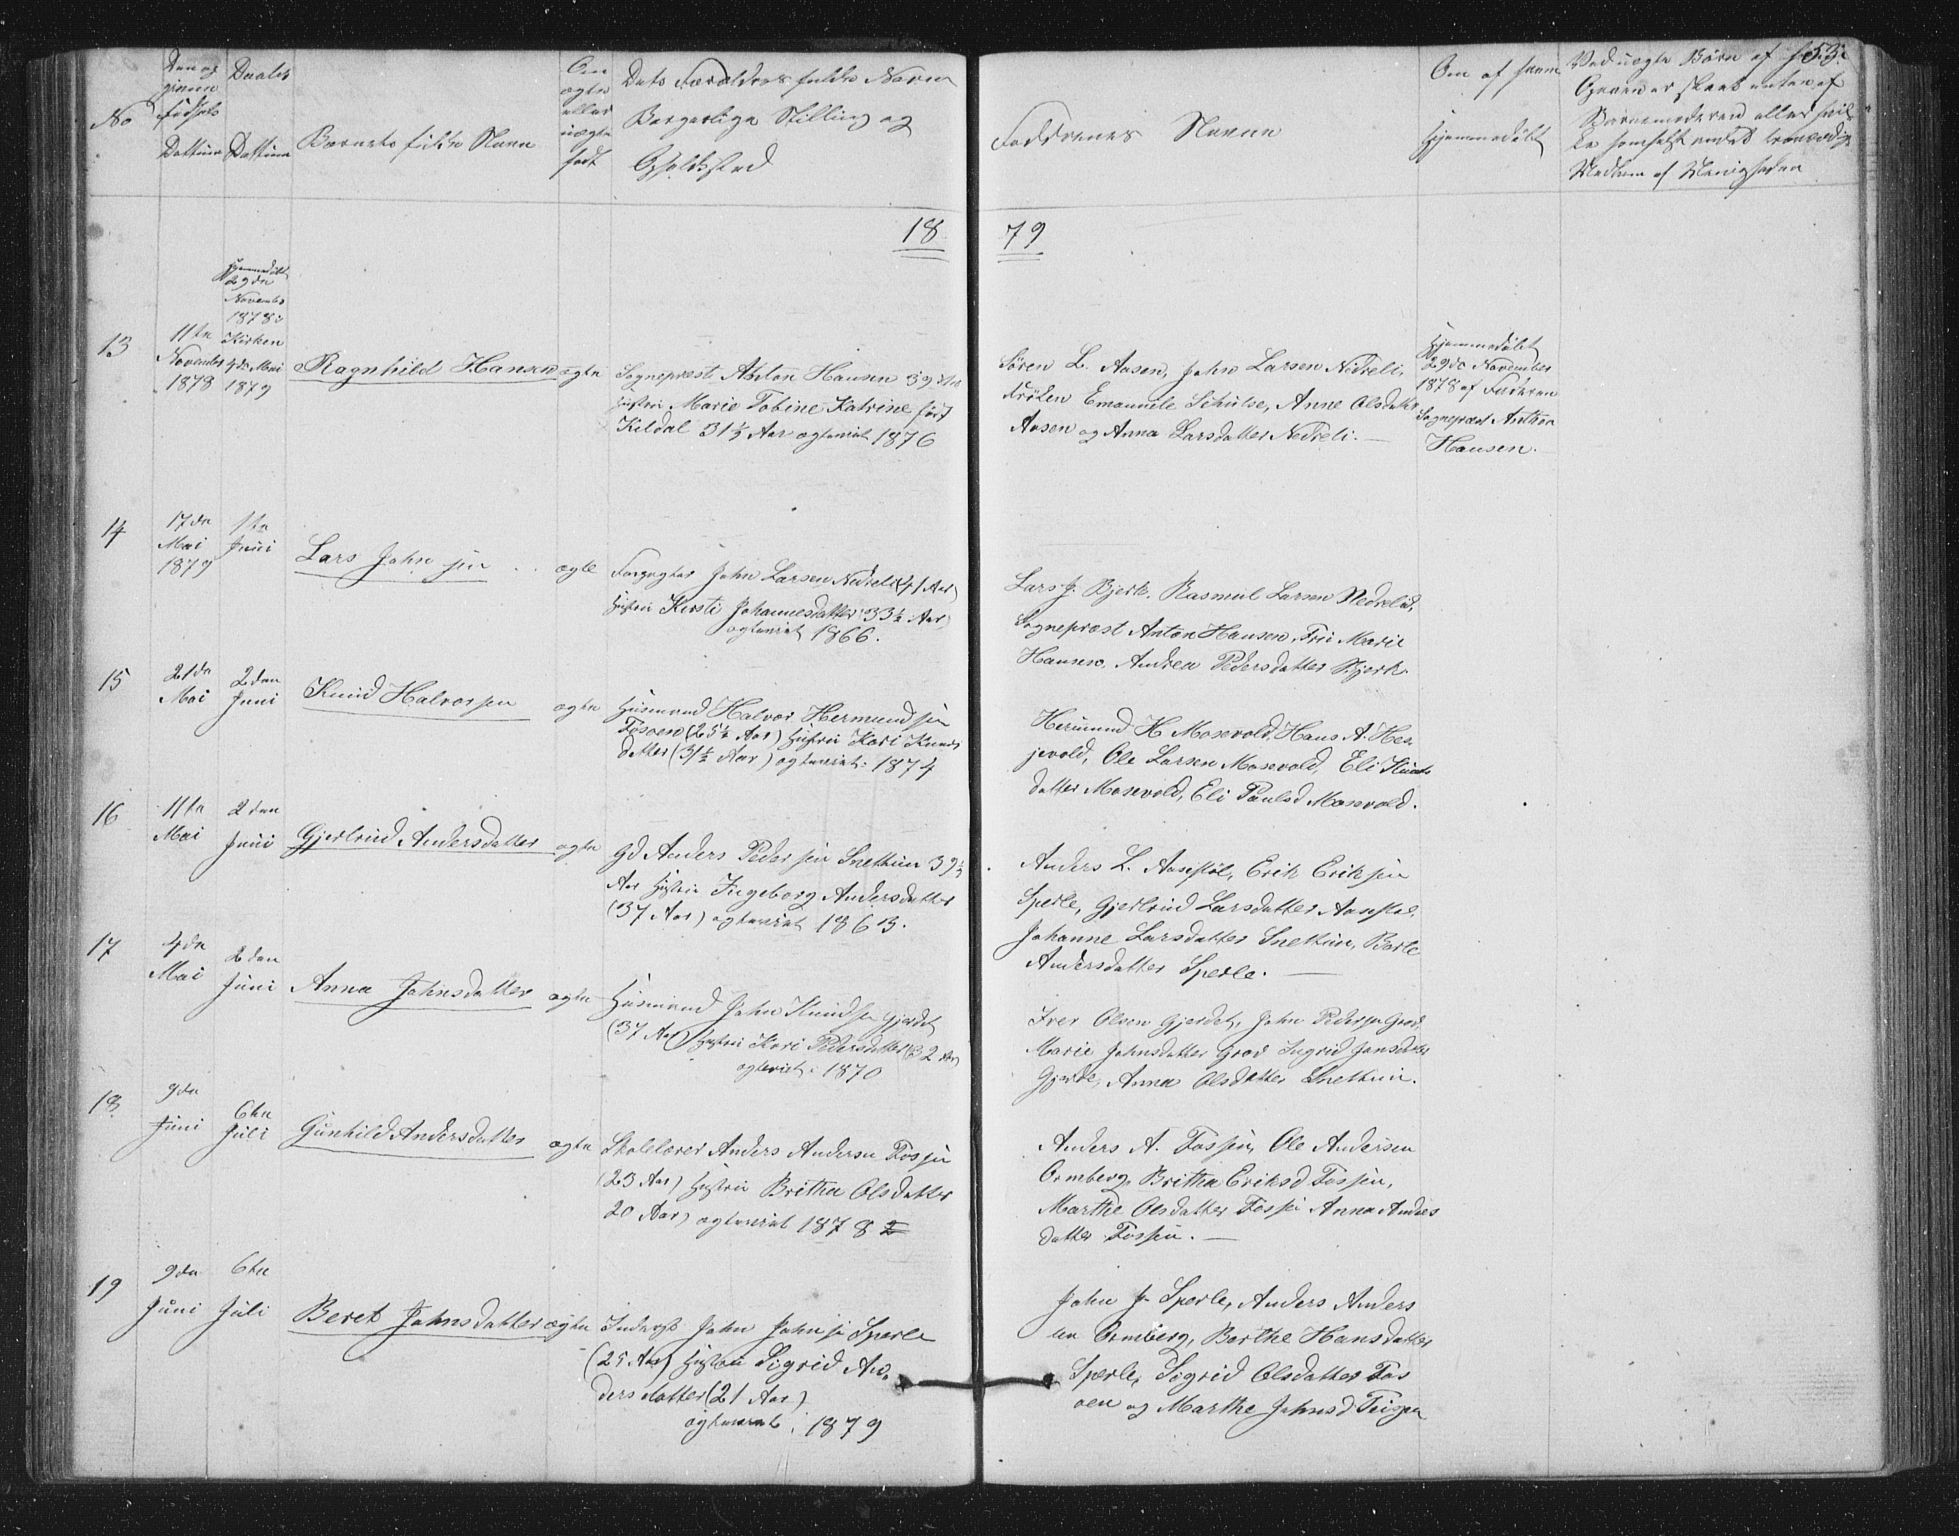 53.
No
Fødsels
Dattum
Daabs
Dattum
Barnets fulde Navn
Om
ægte
eller
uægte
født
Dets Forældres fulde Navne
Borgerlige Stilling og
Opholdssted
Faddernes Navne
Om af hvem
Hjemmedøbt
Ved uægte Børn af
Medlem af Menigheden
18 79
13
11te
November
1878
Hjemmedøbt
29de
November
1878
Kirken
4de Mai
1879
Ragnhild Hansen
ægte
Sogneprest Anton Hansen 39
Hustru Marie Tobine Katrine født
Kildal 31½ Aar ægteviet 1876
Søren L. Aasen, John Larsen Nedreli,
Frøken Emanuele Schulse, Anne Olsdatter
Aasen og Anna Larsdatter Nedreli. —
Hjemmedøbt
29de November
1878 af Faderen
Sogneprest Anton
Hansen.
14
17de
Mai
1879
1te
Juni
Lars Johnsen
ægte
John Larsen Nedreli (41 Aar)
Hustru Kirsti Johannesdatter 33½ Aar
ægteviet 1866.
Lars J. Bjerk, Rasmus Larsen Nedrelid,
Sogneprest Anton Hansen, Fru Marie
Hansen, Andrea Pedersdatter Bjerk.
15
21de
Mai
2den
Juni
Knud Halvorsen
ægte
Husmand Halvor Hermundsen
Fosoen (25½ Aar) Hustru Kari Knuds
datter (31½ Aar) ægteviet: 1874
Hermund H Mosevold, Hans A. Hes
jevold, Ole Larsen Mosevold, Eli Knuds
datter Mosevold, Eli Paulsd Mosevold.
16
11te
Mai
2den
Juni
Gjertrud Andersdatter
ægte
Gd Anders Pedersen Snethun 39½
Aar Hustru Ingeborg Andersdatter
(37 Aar) ægteviet 1863.
Anders L. Aasestøl, Erik Eriksen
Sperle, Gjertrud Larsdatter Aasestøl,
Johanne Larsdatter Snethun, Barte
Andersdatter Sperle. —
17
4de
Mai
2den
Juni
Anna Johnsdatter
ægte
Husmand John Knudsen Gjerdet
(37 Aar) Hustru Kari Pedersdatter (32 Aar)
ægteviet: 1870
Iver Olsen Gjerdet, John Pedersen Grov,
Marie Johnsdatter Grov Ingrid Jonsdatter
Gjerde, Anna Olsdatter Snethun.
18
9de
Juni
6te
Juli
Gunhild Andersdatter
ægte
Skolelærer Anders Andersen Fossen
(23 Aar) Hustru Britha Olsdatter
20 Aar) ægteviet 1878
Anders A. Fossen, Ole Andersen
Ormberg, Britha Eriksd Fossen,
Marthe Olsdatter Fossen Anna Anders
datter Fossen. —
19
9de
Juni
6te
Juli
Beret Johnsdatter
ægte
Inderst John Johnsen Sperle
(25 Aar) Hustru Sigrid An
dersdatter (21 Aar)
ægteviet: 1879
John J. Sperle, Anders Anders
en Ormberg, Barthe Hansdatter
Sperle, Sigrid Olsdatter Fos
oen og Marthe Johnsd